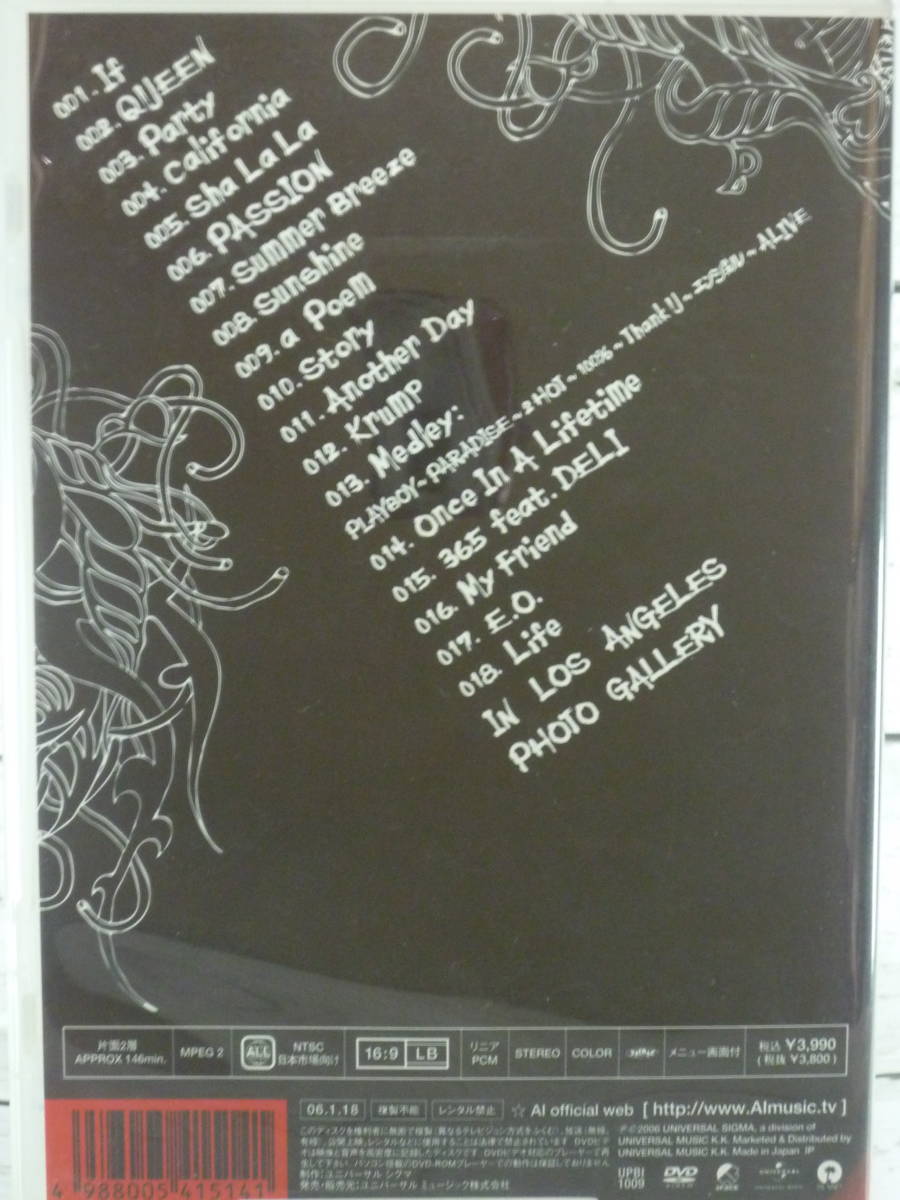 001. If
002. QUEEN
003. Party
004. California
005. Sha La La
006. PASSION
007. Summer Breeze
008. Sunshine
009. a Poem
010. Story
011. Another Day
012. Krump
013. Medley:
PLAYBOY~PARADISE~2 HOT~100%~Thank U~エンジボル~ALIVE
014. Once In A Lifetime
015. 365 feat. DELI
016. My Friend
017. E.O.
018. Life
IN LOS ANGELES
PHOTO GALLERY
片面2層
APPROX 146min.
MPEG 2
ALL
NTSC
日本市場向け
16:9 LB
リニア
PCM
STEREO
COLOR
メニュー画面付
税込 ¥3,990
(税抜 ¥3,800)
06.1.18 複製不能 レンタル禁止 ☆ AI official web [ http://www.AImusic.tv ]
このディスクを権利者に無断で複製(異なるテレビジョン方式をふくむ)、放送(無線、
有線)、公開上映、レンタルなどに使用することは法律で禁止されています。DVDビデ
オは映像と音声を高密度に記録したディスクです。DVDビデオ対応のプレーヤーで再
生して下さい。パソコン搭載のDVD-ROMプレーヤーでの動作は保証しておりません。
制作:ユニバーサル シグマ
発売・販売元:ユニバーサル ミュージック株式会社
℗©2006 UNIVERSAL SIGMA, a division of
UNIVERSAL MUSIC K.K. Marketed & Distributed by
UNIVERSAL MUSIC K.K. Made in Japan JP
UPBI
1009
DVD
VIDEO
UNIVERSAL
4 988005 415141